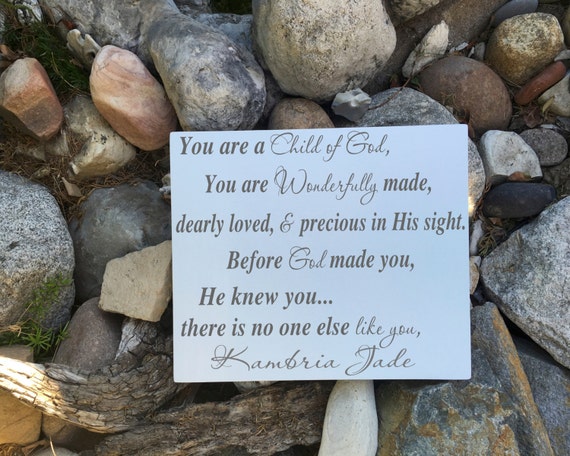 You are a Child of God,
You are Wonderfully made,
dearly loved, & precious in His sight.
Before God made you,
He knew you...
there is no one else like you,
Kambria Jade